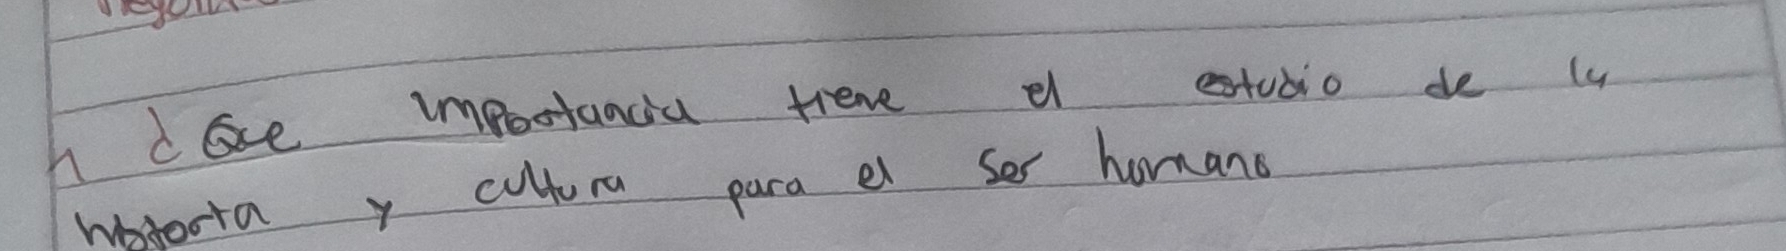 ¿Que importancia tiene el estudio de la
historia y cultura para el ser humano